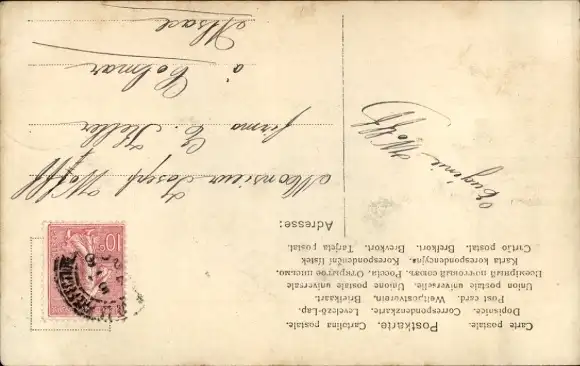 Carte postale. Postkarte. Cartolina postale.
Dopisnice. Correspondenzkarte. Levelező-Lap.
Post card. Weltpostverein. Briefkaart.
Union postale universelle. Unione postale universale
Всемірный почтовый союзъ. Россія. Открытое письмо.
Karta korespondencyjna. Korespondenční lístek
Cartão postal. Brefkort. Brevkort. Tarjeta postal.
Adresse:
Monsieur Joseph Wolff
firma C. Keller
à Colmar
Alsace
Eugénie Wolff
10